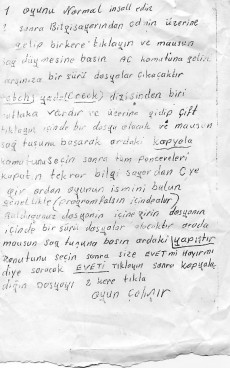 1 oyunu Normal insall edin
1 sonra Bilgisayarınızdan cd'nin üzerine
gelip birkere tıklayın ve mausun
sağ düymesine basın AC komutuna gelin
karşınıza bir sürü dosyalar çıkacaktır
yada (Crack) dizisinden biri
mutlaka vardır ve üzerine gidip çift
tıklayın içinde bir dosya olacak ve mausun
sağ tuşuna basarak ordaki kopyala
komutunu seçin sonra tüm pencereleri
kapatın tekrar bilg sayardan C ye
gir ordan oyunun ismini bulun
genellikle (program Fálsın içindedir)
bulduğunuz dosyanın içine girin dosyanın
içinde bir sürü dosyalar olacaktır orada
mausun sağ tuşuna basın ordaki yapıştır
komutunu seçin sonra size EVET mi Hayır mı
diye soracak EVETİ tıklayın sonra kopyala
dığın Dosyayı 2 kere tıkla
oyun Çalışır